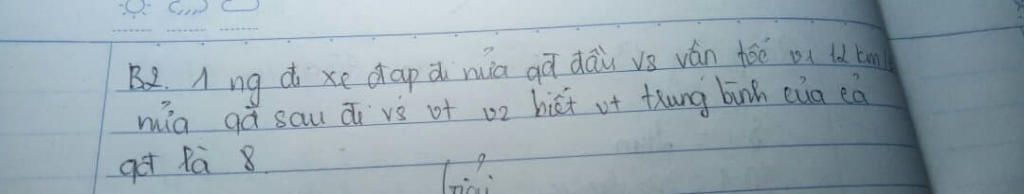 B2. 1 ng đi xe đạp đi nửa qđ đầu vs vân tốc v1 12 km/
nửa qđ sau đi vs vt v2 biết vt trung bình của cả
qđ là 8.